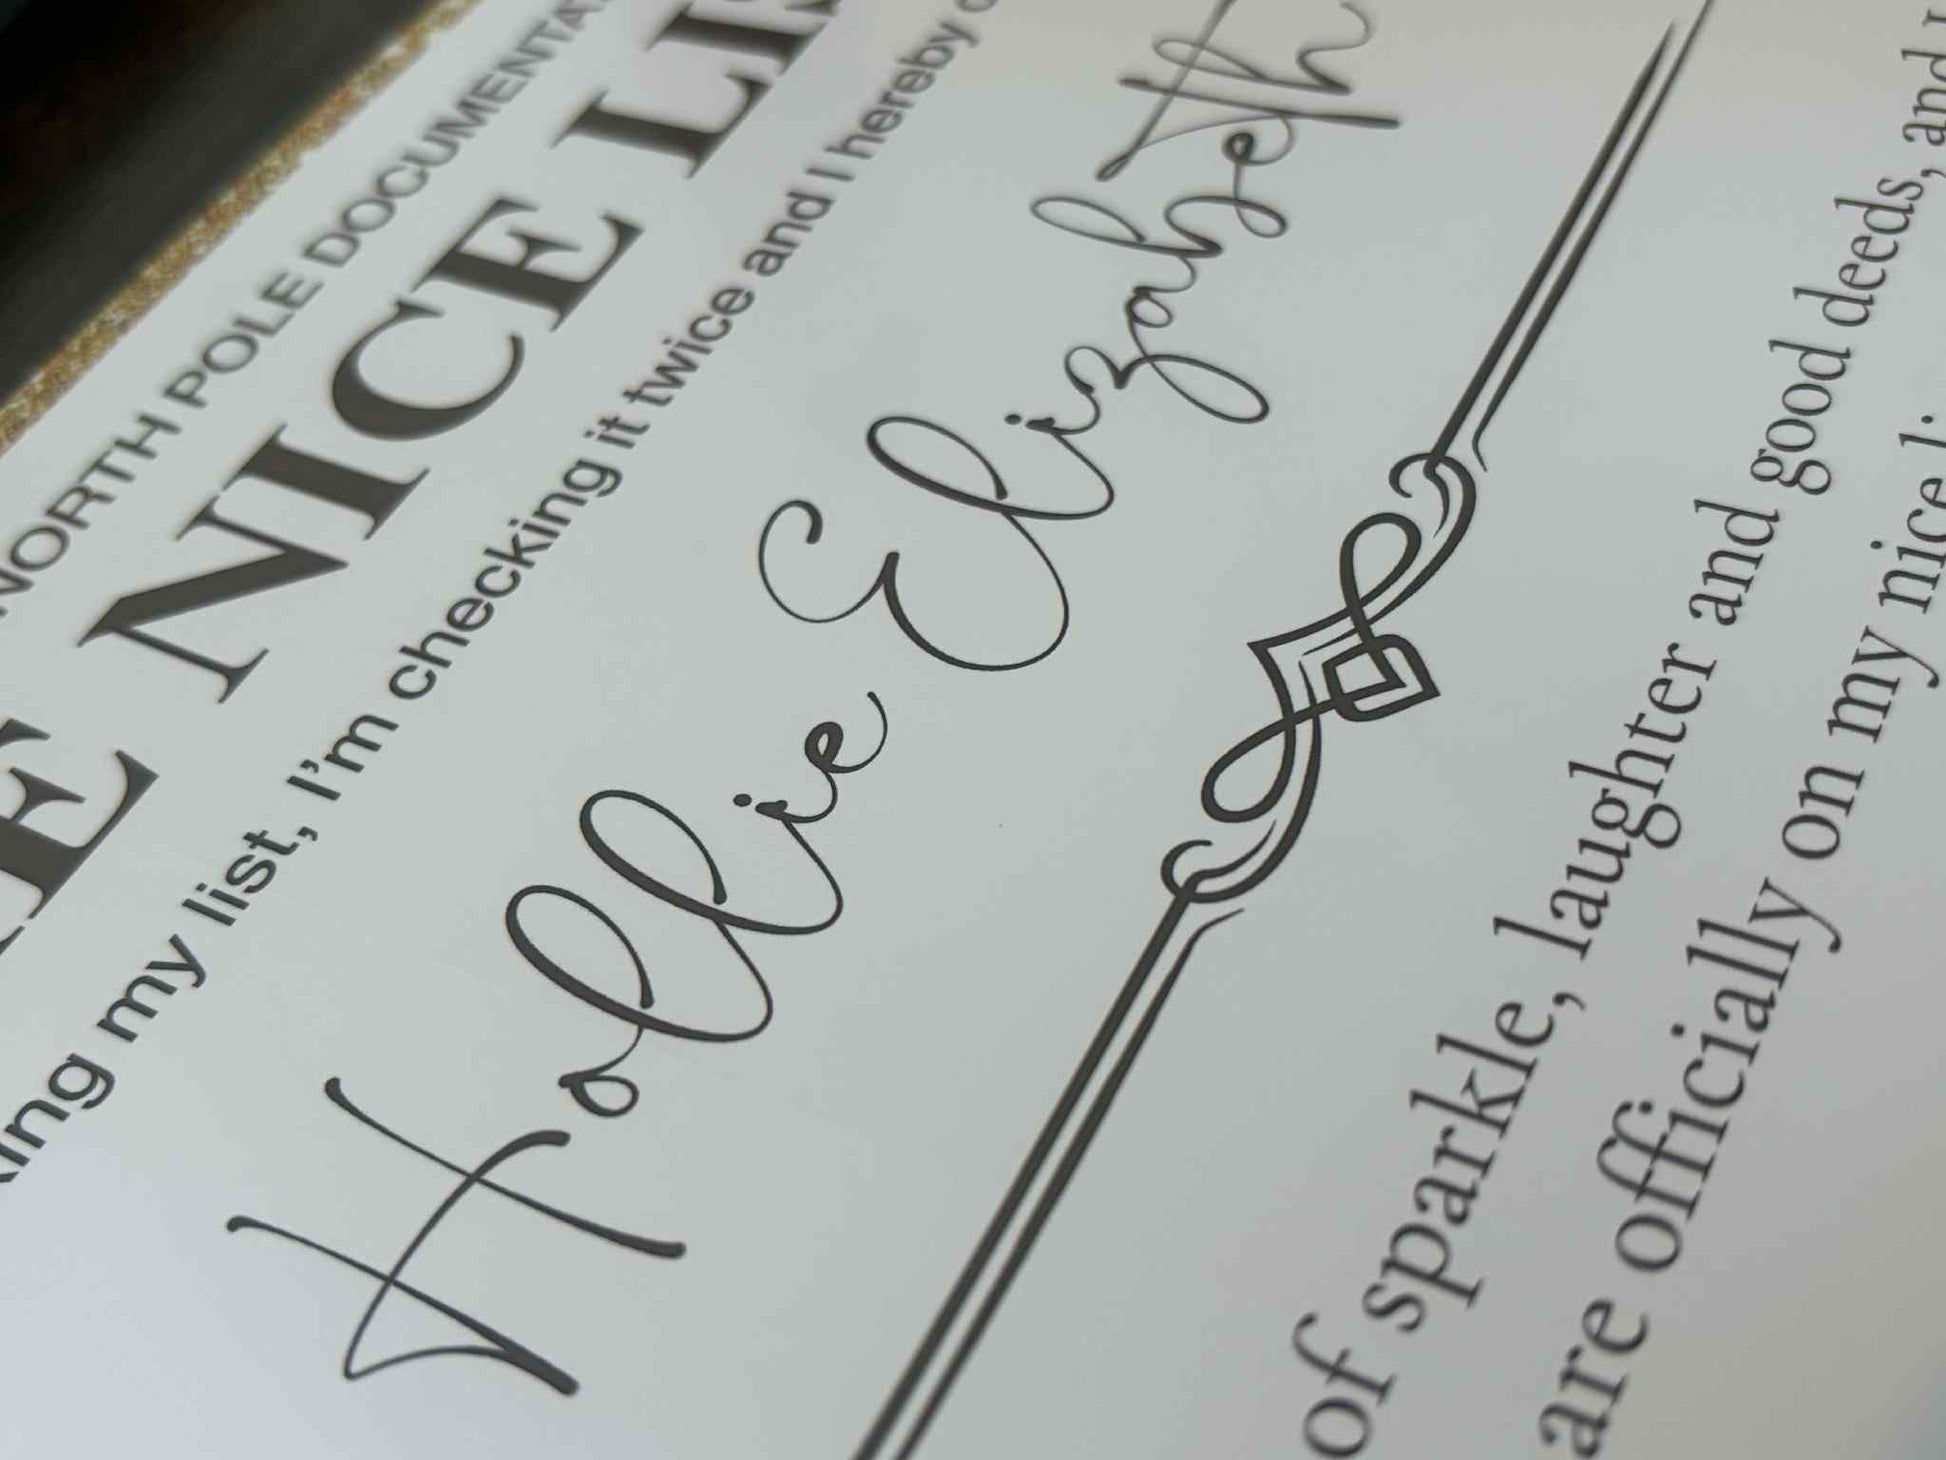 NORTH POLE
NICE
my list, I'm checking it twice and I hereby
Hollie Elizabeth
of sparkle, laughter and good deeds, and
are officially on my nice